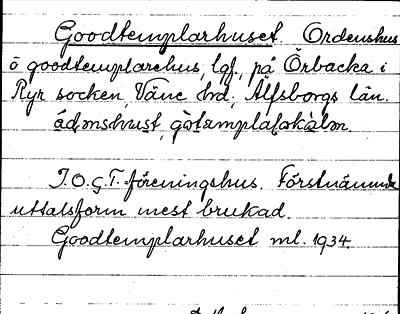 Goodtemplarhuset. Ordenshus
o goodtemplarehus, lgf, på Örbacka i
Ryr socken, Väne hrd; Älfsborgs län.
I.O.G.T.-föreningshus. Förstnämnda
uttalsform mest brukad.
Goodtemplarhuset ml. 1934.